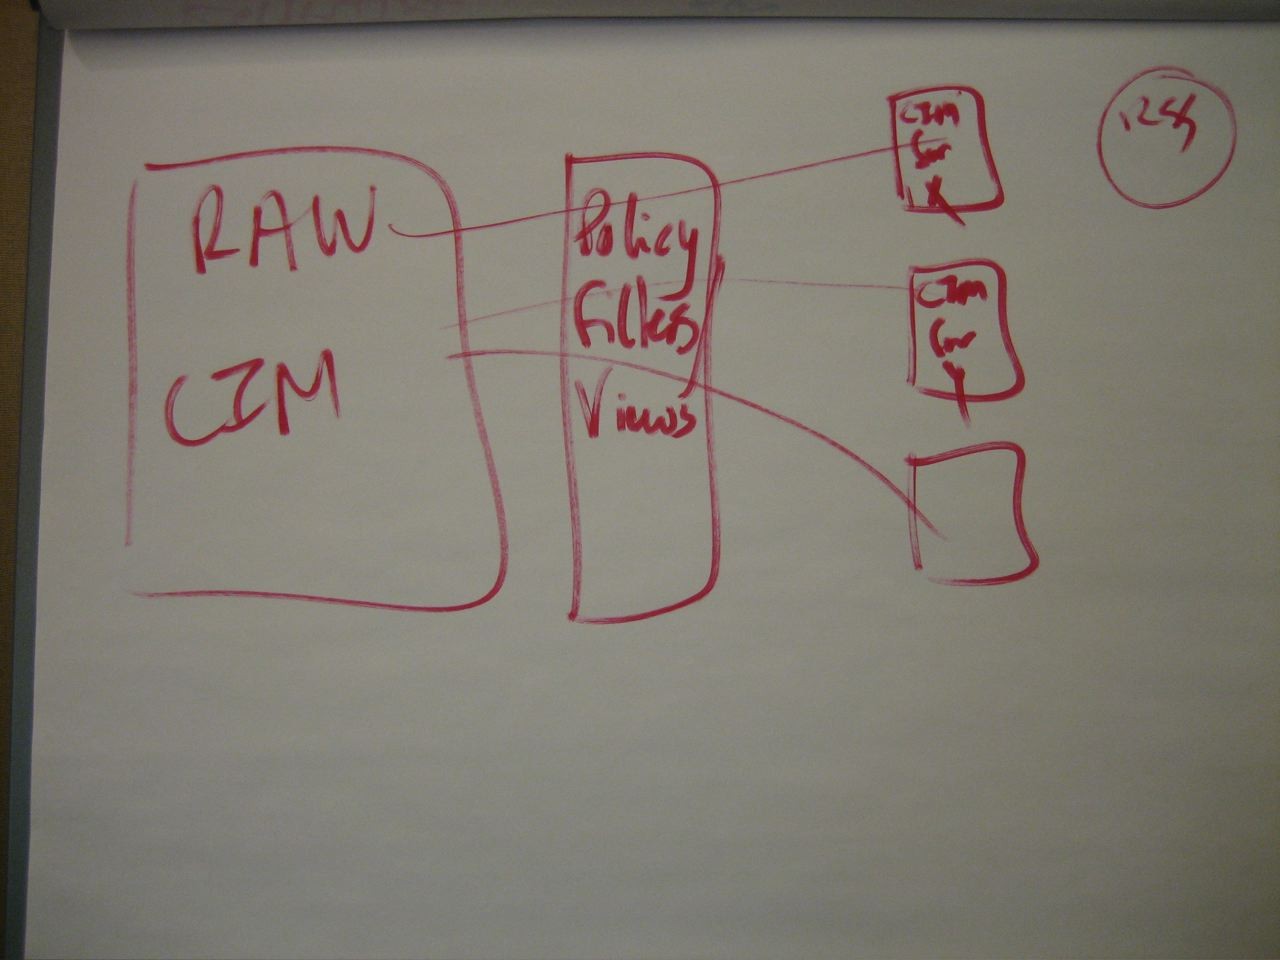 RAW
CIM
Policy
Filters
Views
CIM
for
X
CIM
for
Y